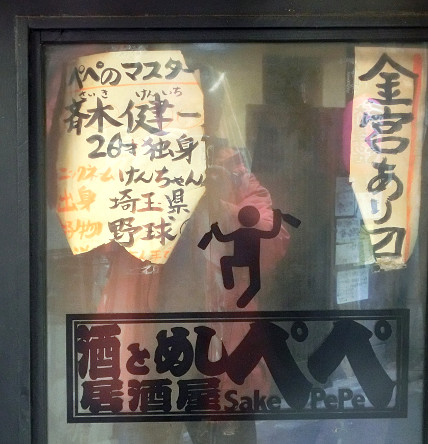 ペペのマスター
さいき けんいち
斉木健一
26才独身
ニックネーム けんちゃん
出身 埼玉県
好物 野球
金宮あり〼
酒とめしペペ
居酒屋 Sake PePe